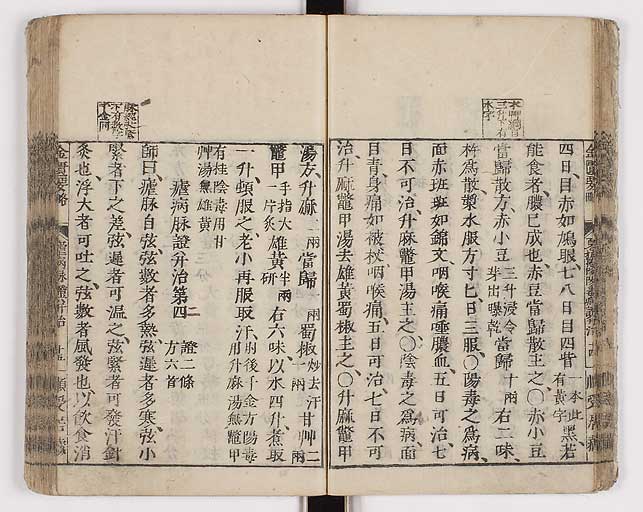 四日目赤如鳩眼七八日目四眥一本此有黃字黑若
能食者膿已成也赤豆當歸散主之〇赤小豆
當歸散方赤小豆三升浸令芽出曝乾當歸十兩右二味
杵爲散漿水服方寸匕日三服〇陽毒之爲病
面赤斑斑如錦文咽喉痛唾膿血五日可治七
日不可治升麻鱉甲湯主之〇陰毒之爲病面
目青身痛如被杖咽喉痛五日可治七日不可
治升麻鱉甲湯去雄黃蜀椒主之〇升麻鱉甲
湯方升麻二兩當歸一兩蜀椒炒去汗一兩甘艸二兩
鱉甲手指大一片炙雄黃半兩研右六味以水四升煮取
一升頓服之老小再服取汗
瘧病脉證幷治第四證二條方六首
師曰瘧脉自弦弦數者多熱弦遲者多寒弦小
緊者下之差弦遲者可溫之弦緊者可發汗針
灸也浮大者可吐之弦數者風發也以飮食消